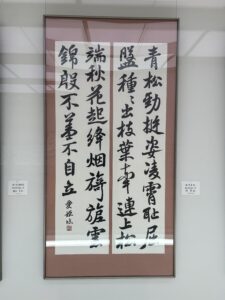 青松勁挺姿凌霄恥屈
盤種々出枝葉牽連上松
端秋花起絳烟旖旎雲
錦殷不羞不自立